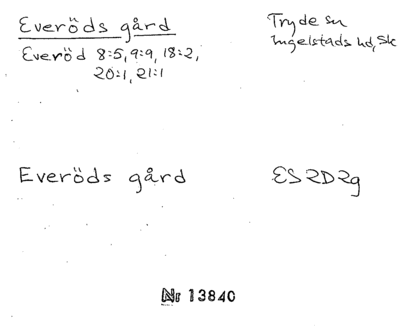 Everöds gård
Everöd 8:5, 9:9, 18:2,
20:1, 21:1
Tryde sn
Ingelstads hd, Sk
Everöds gård
ES2D2g
Nr 13840